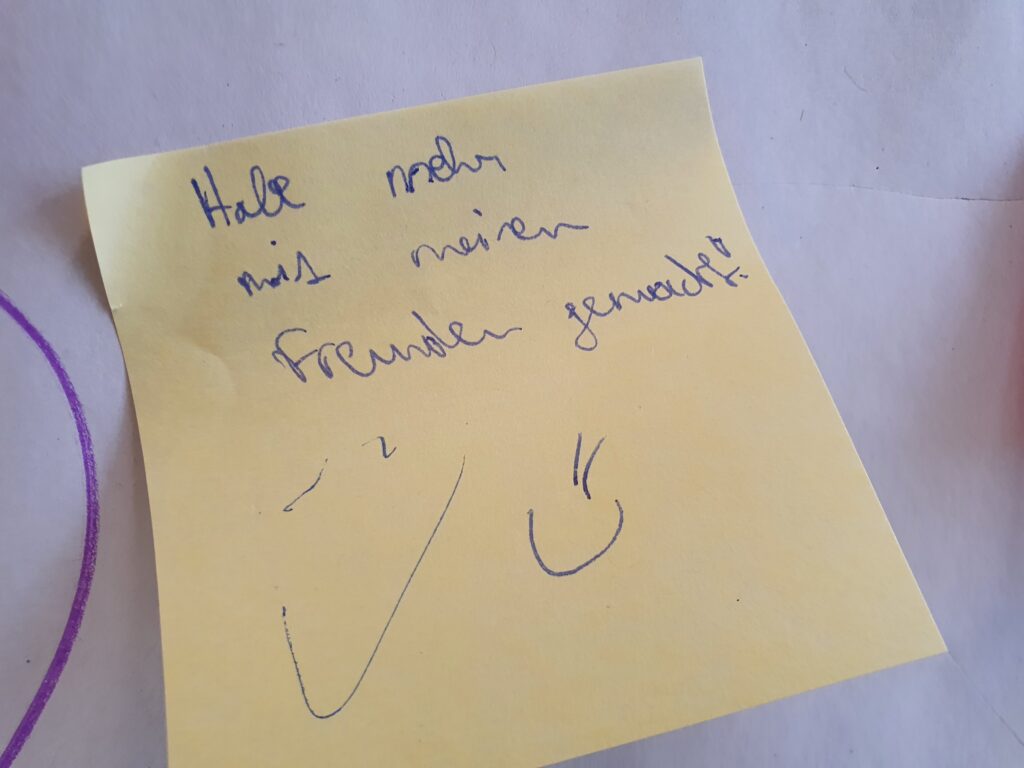 Habe mehr
mit meinen
Freunden gemacht!!